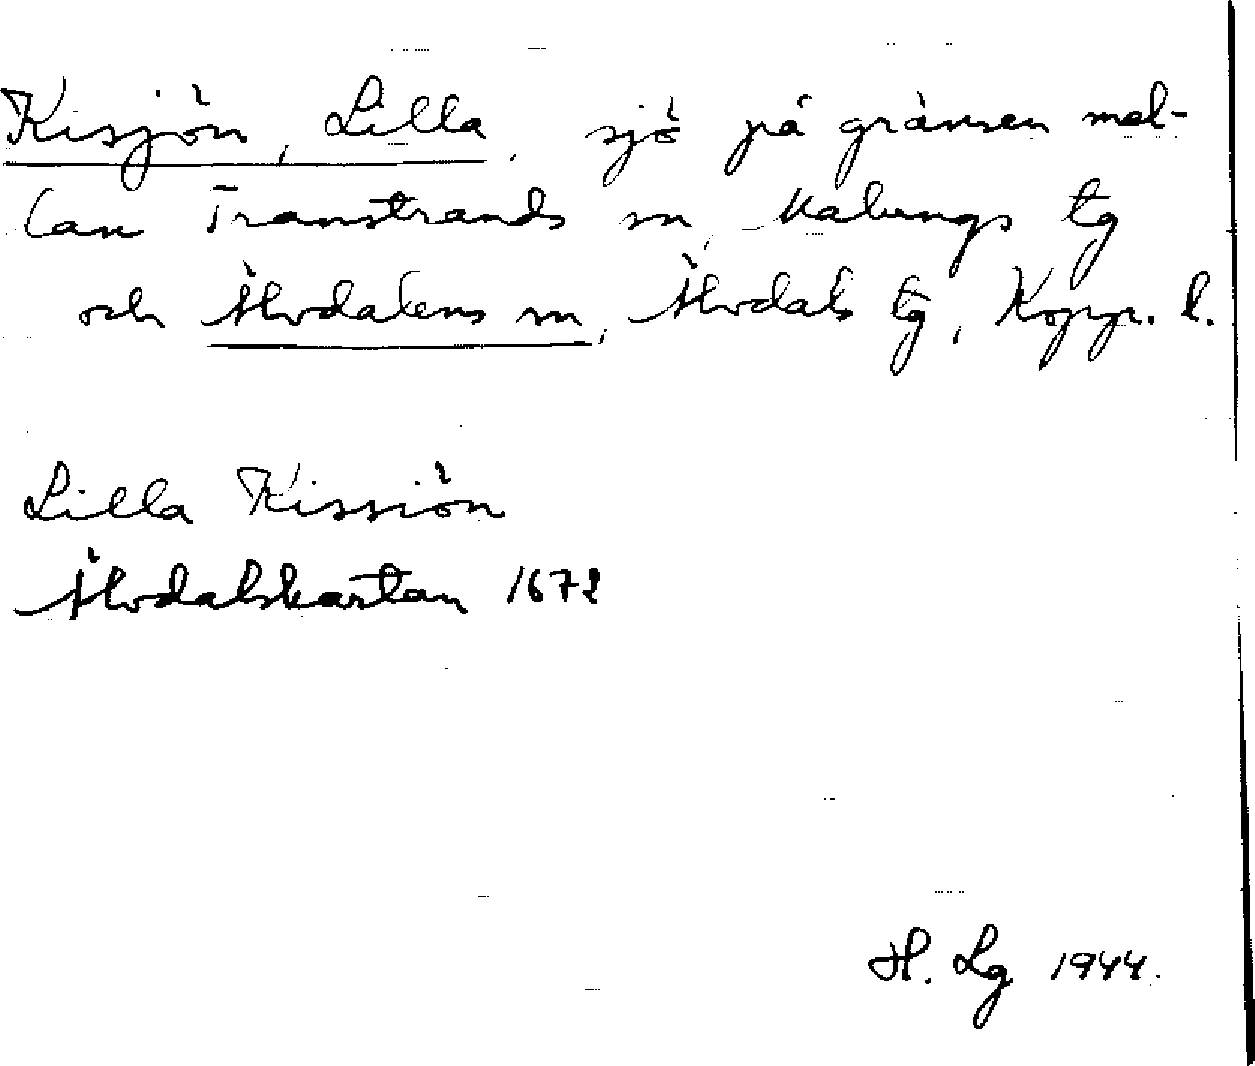 Kisjön, Lilla, sjö på gränsen mel-
lan Transtrands sn, Malungs tg
och Älvdalens sn, Älvdals tg, Kopp. l.
Lilla Kissiön
Älvdalskartan 1672
H. Lg 1944.